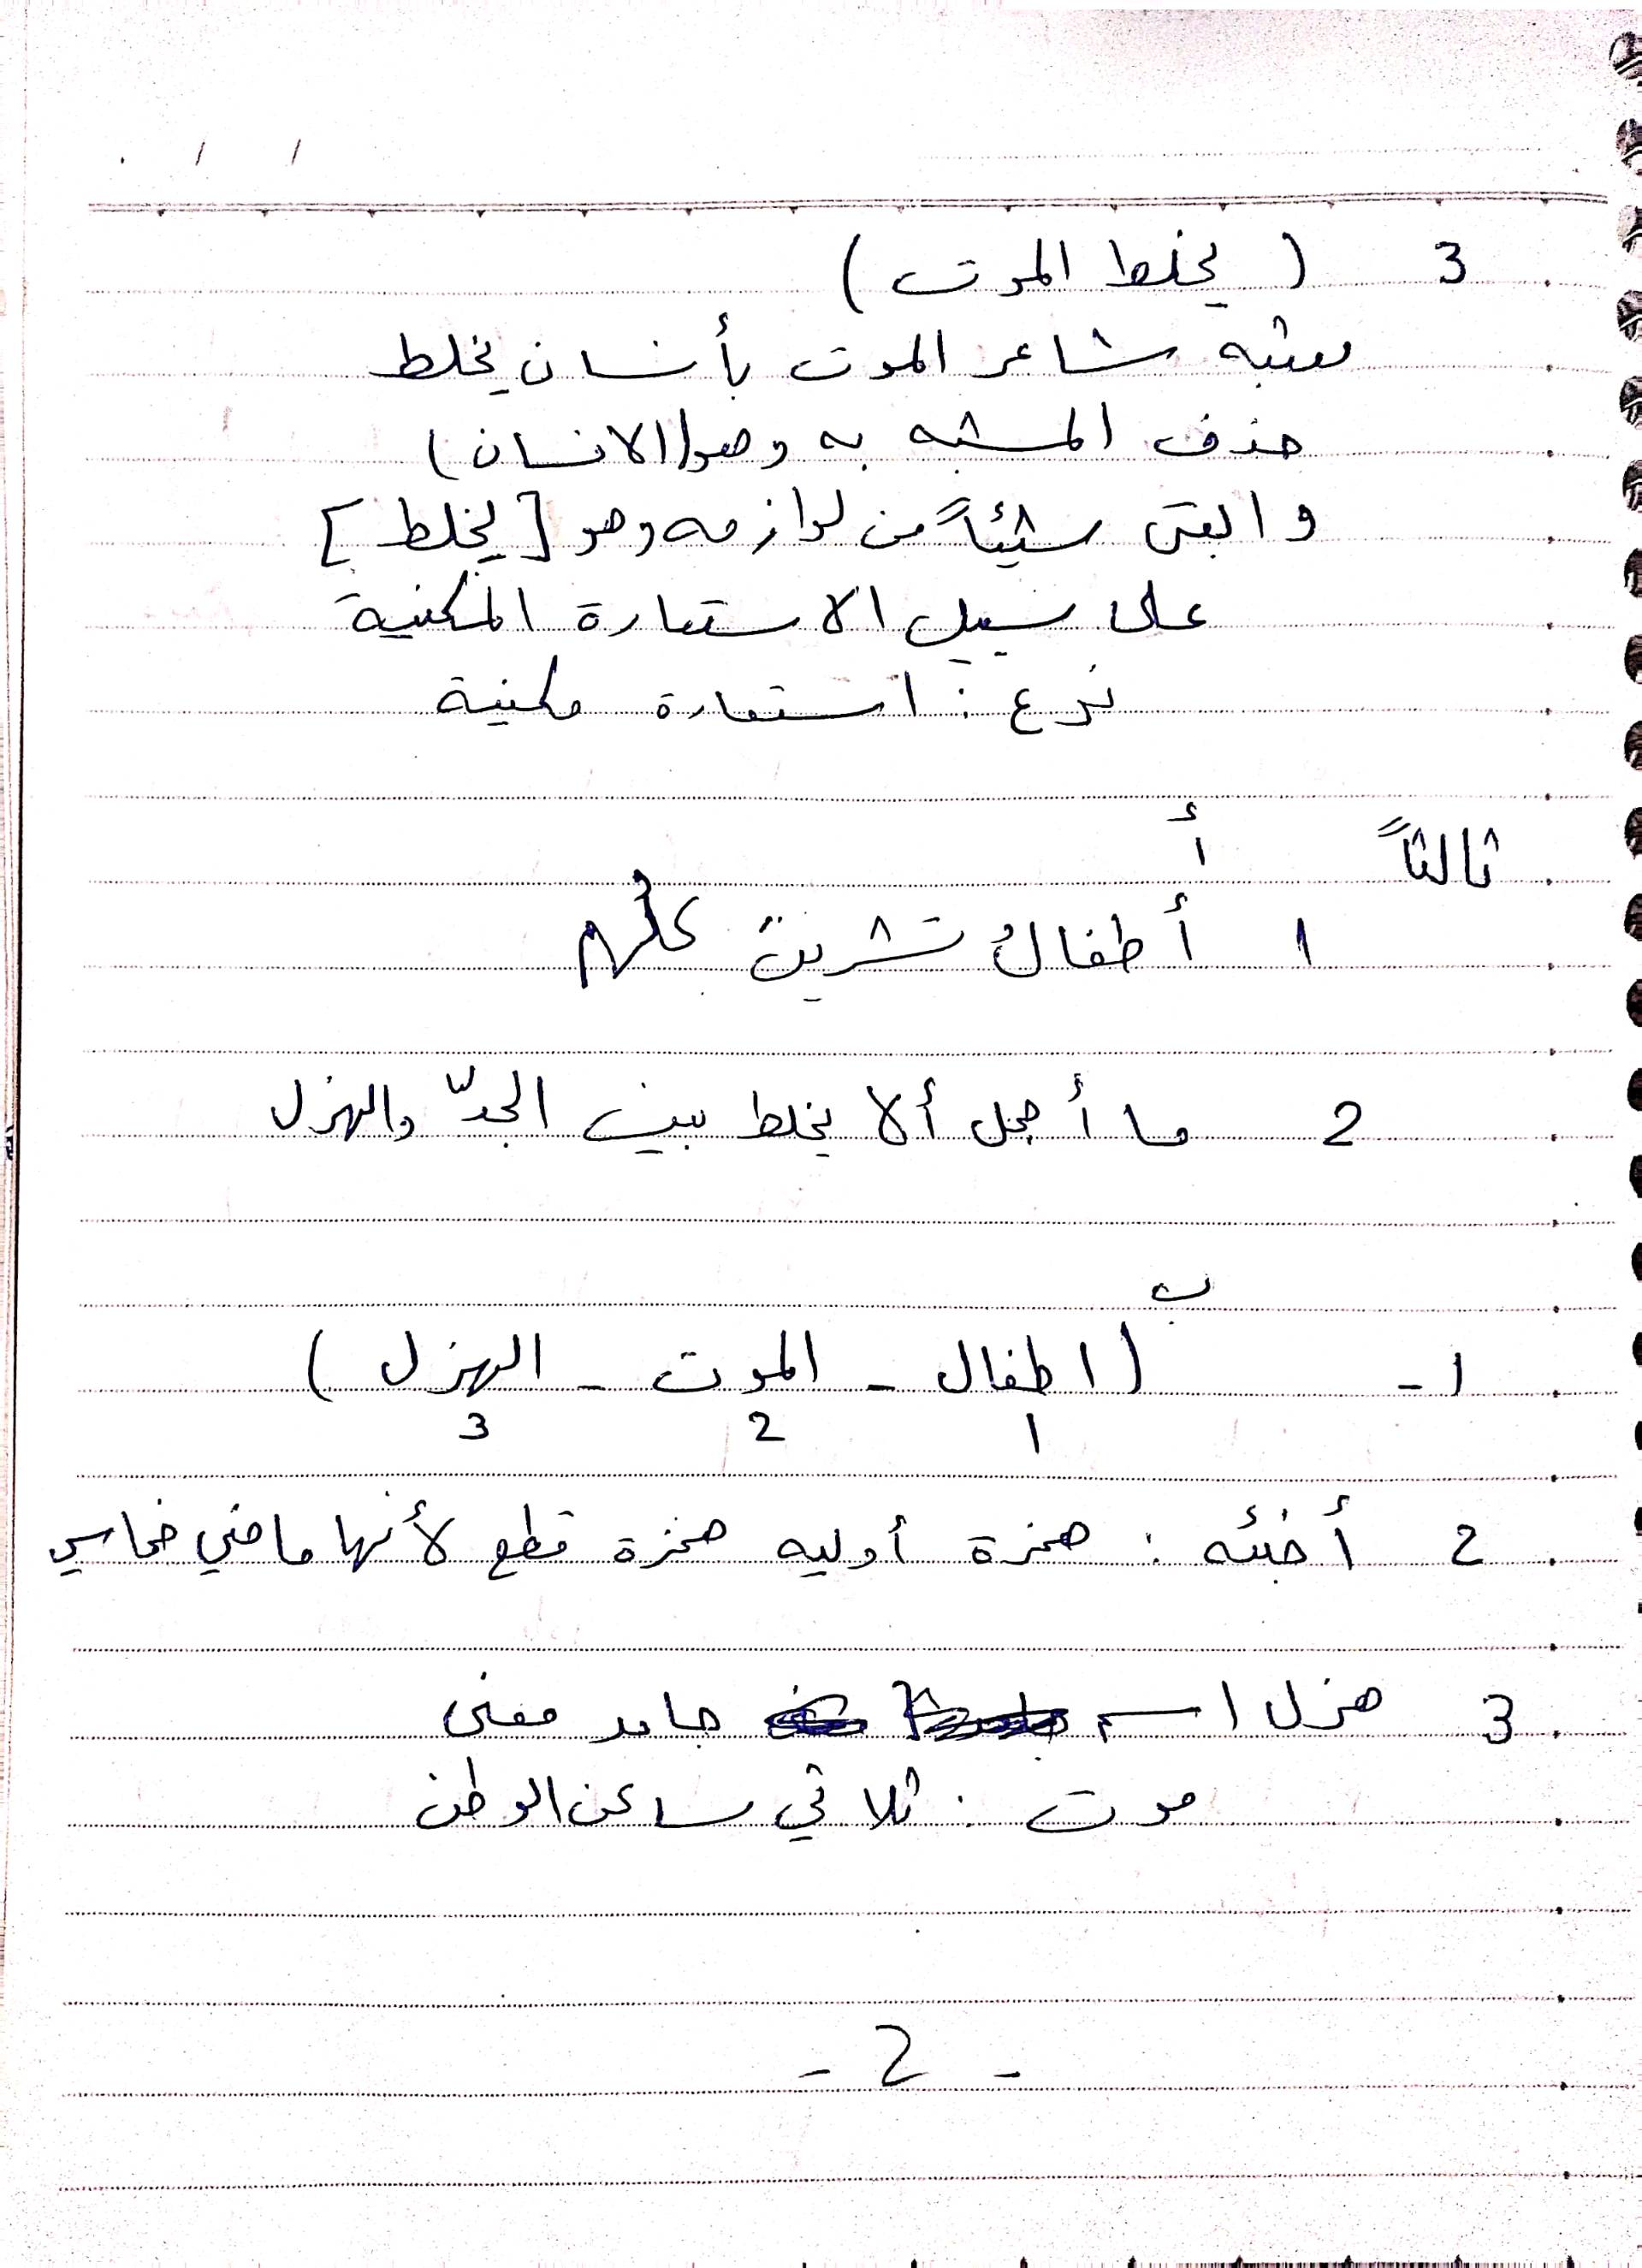 3 ( يخلط الموت )
شبه شاعر الموت بأنسان يخلط
حذف المشبه به وهو (الانسان)
وابقى شيئاً من لوازمه وهو [يخلط]
على سبيل الاستعارة المكنية
نوع : استعارة مكنية
ثالثاً أ
1 أطفالُ تشرينَ كلُهم
2 ما أجمل ألا يخلط بين الجدّ والهزل
ب
1- (اطفال - الموت - الهزل)
1 2 3
2 أخبئه : همزة أوليه همزة قطع لأنها ماضي خماسي
3 هزل اسم جامد معنى
موت : ثلاثي ساكن الوطن
- 2 -